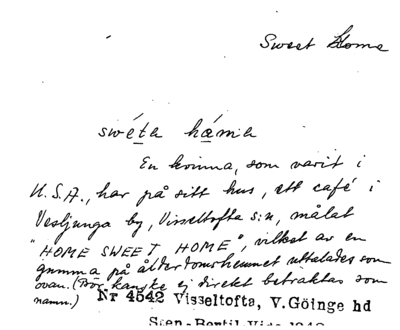 Sweet Home
swéta háma
En kvinna, som varit i
U.S.A., har på sitt hus, ett café i
Vesljunga by, Visseltofta s:n, målat
"HOME SWEET HOME", vilket av en
gumma på ålderdomshemmet uttalades som
ovan. (Bör kanske ej direkt betraktas som
namn.)
Nr 4542 Visseltofta, V.Göinge hd
Sten-Bertil Vide